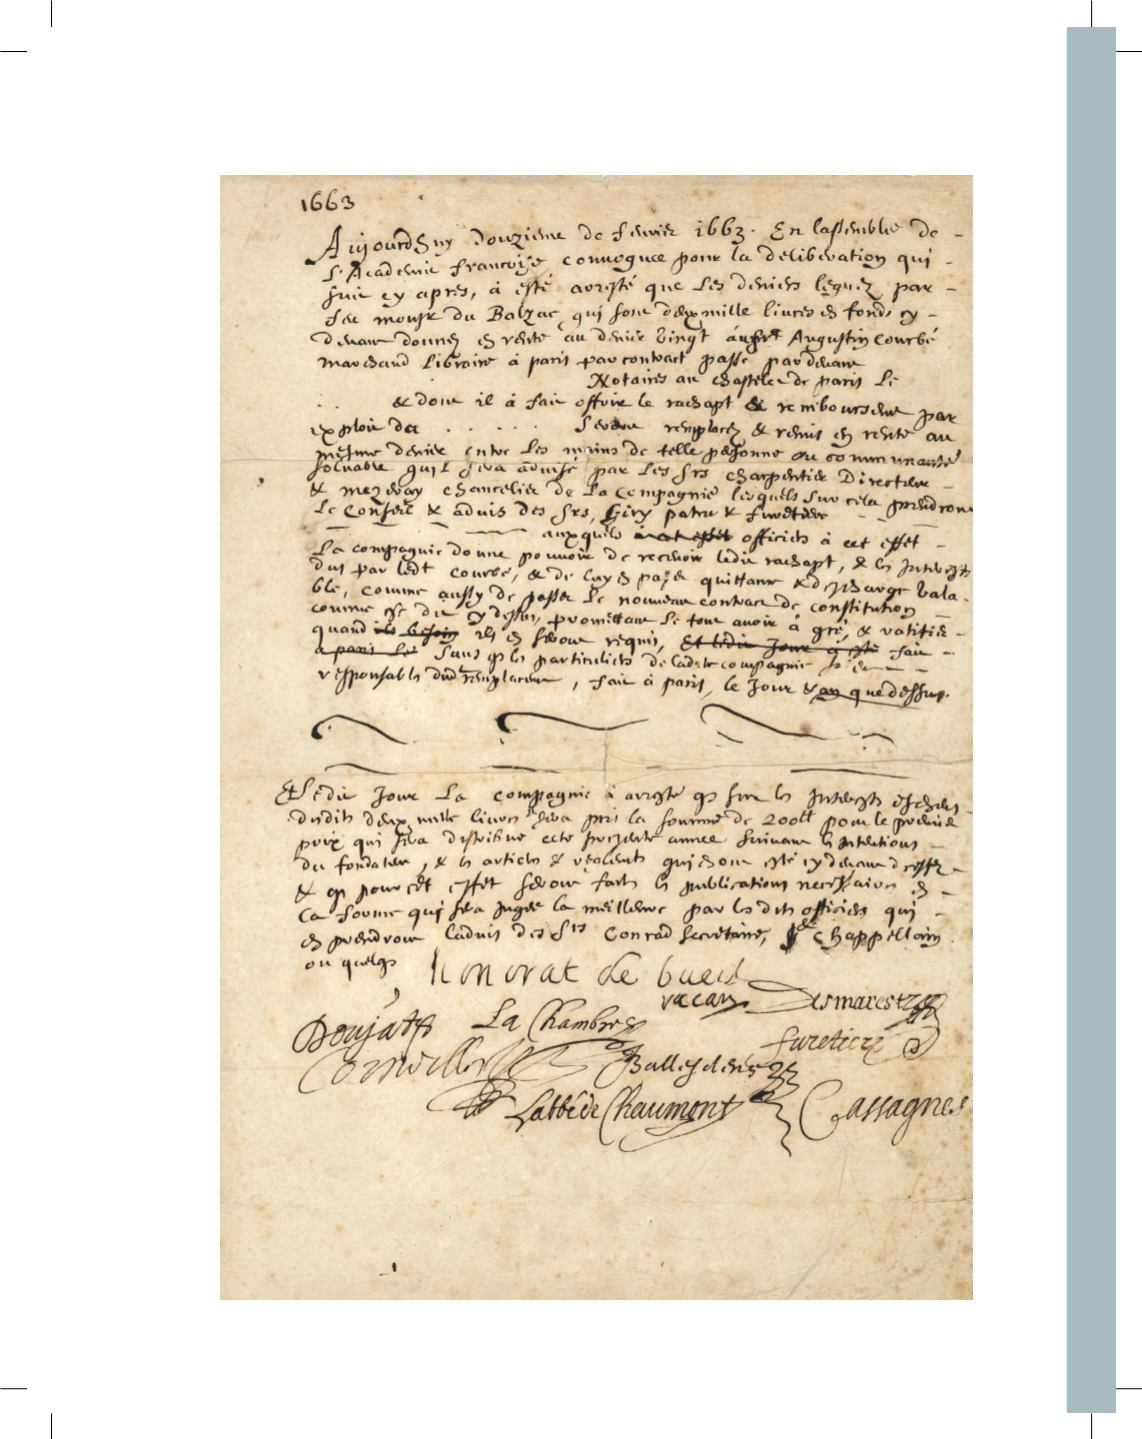 1663
Aujourdhuy douziesme de fevrier 1663. En lassemblee de
l'Academie francoise convoquee pour la deliberation qui
suit cy apres, à esté arresté que les deniers leguez par
feu monsr du Balzac, qui sont deux mille livres en fonds cy
devant donnez en rente au denier vingt Augustin Courbé
marchand libraire à paris par contract passé pardevant
Notaires au chastelet de paris le
& dont il à fait offrir le rachapt & remboursement par
exploit du . . . . . . seront remplacez & remis en rente au
mesme denier entre les mains de telle personne ou communauté
solvable quil sera advisé par les srs charpentier Directeur
& mezeray chancelier de la Compagnie lesquels sur cela prendront
le Conseil & advis des srs, Giry patru & furetiere
auxquels à cet effet officiers à cet effet
la compagnie donne pouvoir de recevoir ledit rachapt, & les Interests
dus par ledt Courbé, & de luy en payer quittance & descharge vala-
ble, comme aussy de passer le nouveau contract de constitution
comme est dit cy dessus, promettant le tout avoir à gré, & ratifier
quand ils en seront requis, Et ledit Jour à esté fait
a paris les sans q les particuliers de ladite compagnie
responsables dud remplacement, fait à paris, le Jour & an que dessus.
Et ledit Jour La compagnie à arresté q sur les Interests escheus
desdits deux mille livres sera pris la somme de 200lt pour le premier
prix qui sera distribué cette presente année suivant les Intentions
du fondateur, & les articles & reglements qui en ont esté cy devant dressez
& q pour cet effet seront faits les publications necessaires en
la forme qui sera jugée la meilleure par les dits officiers qui
en prendront ladvis des srs Conrad secretaire, & Chappellain
ou quelqs
honorat de bueil
racan Desmarestz
Doujat La Chambre
furetiere
Corneille Ballesdens
Labbé de Chaumont Cassagnes